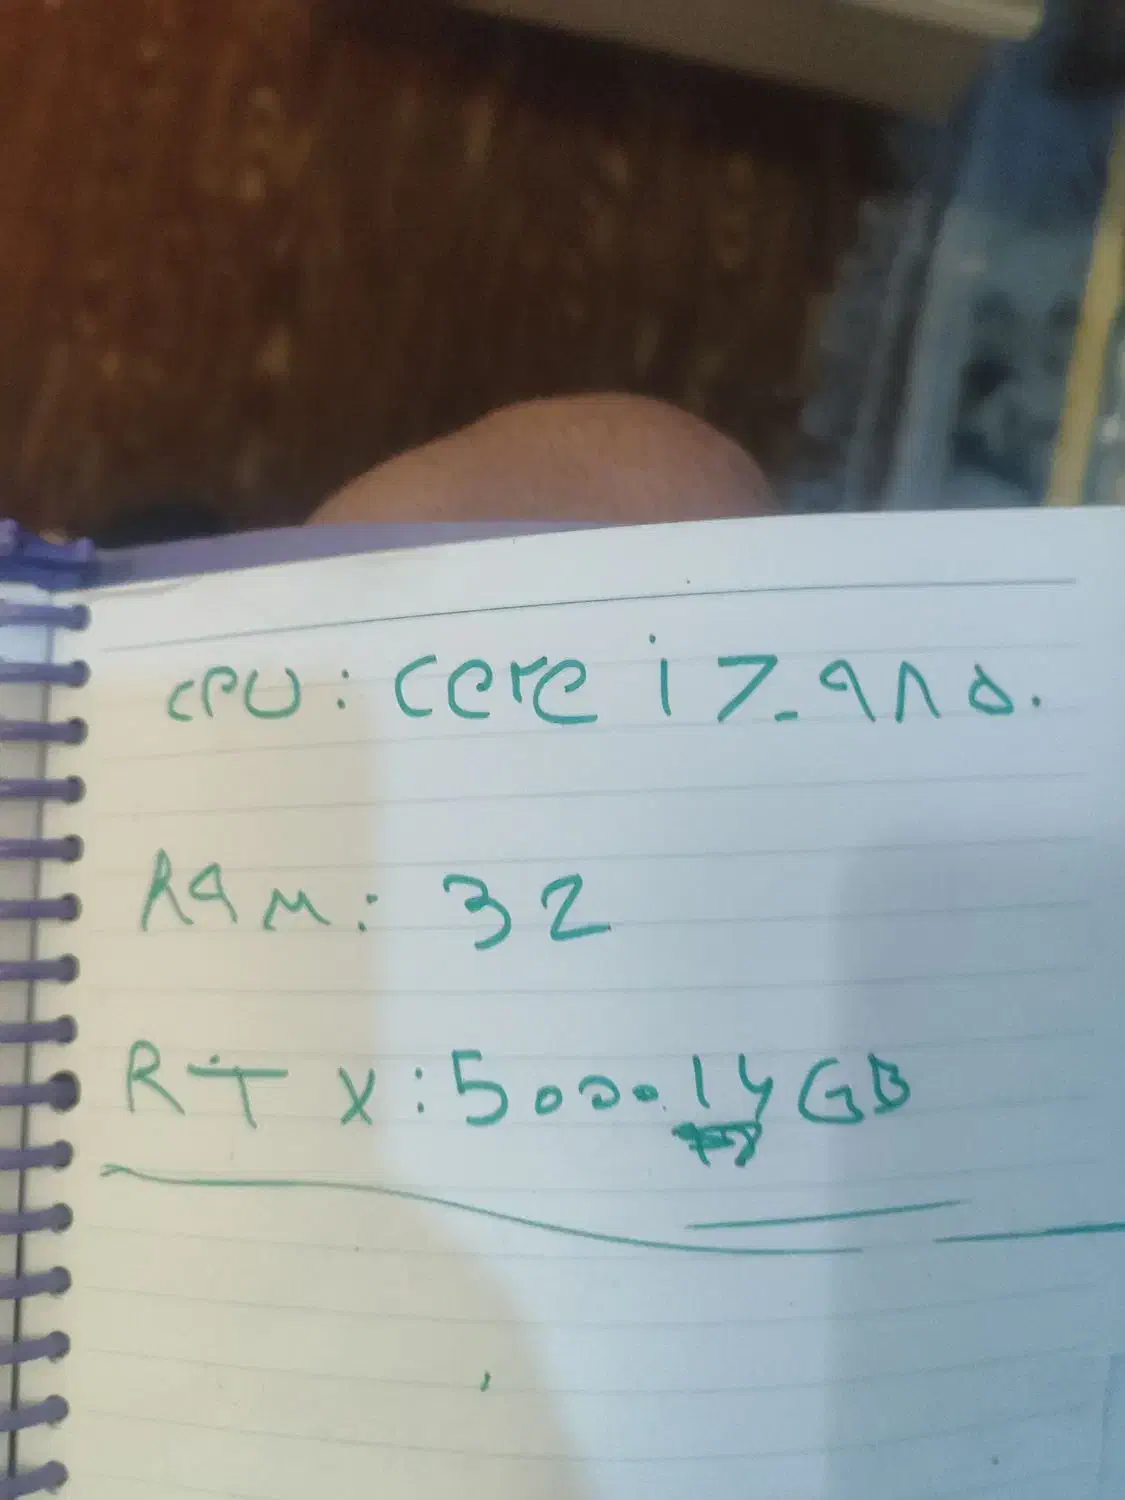 CPU: Core i7_۹۸۵۰
RAM: 32
RTX: 5000.14GB